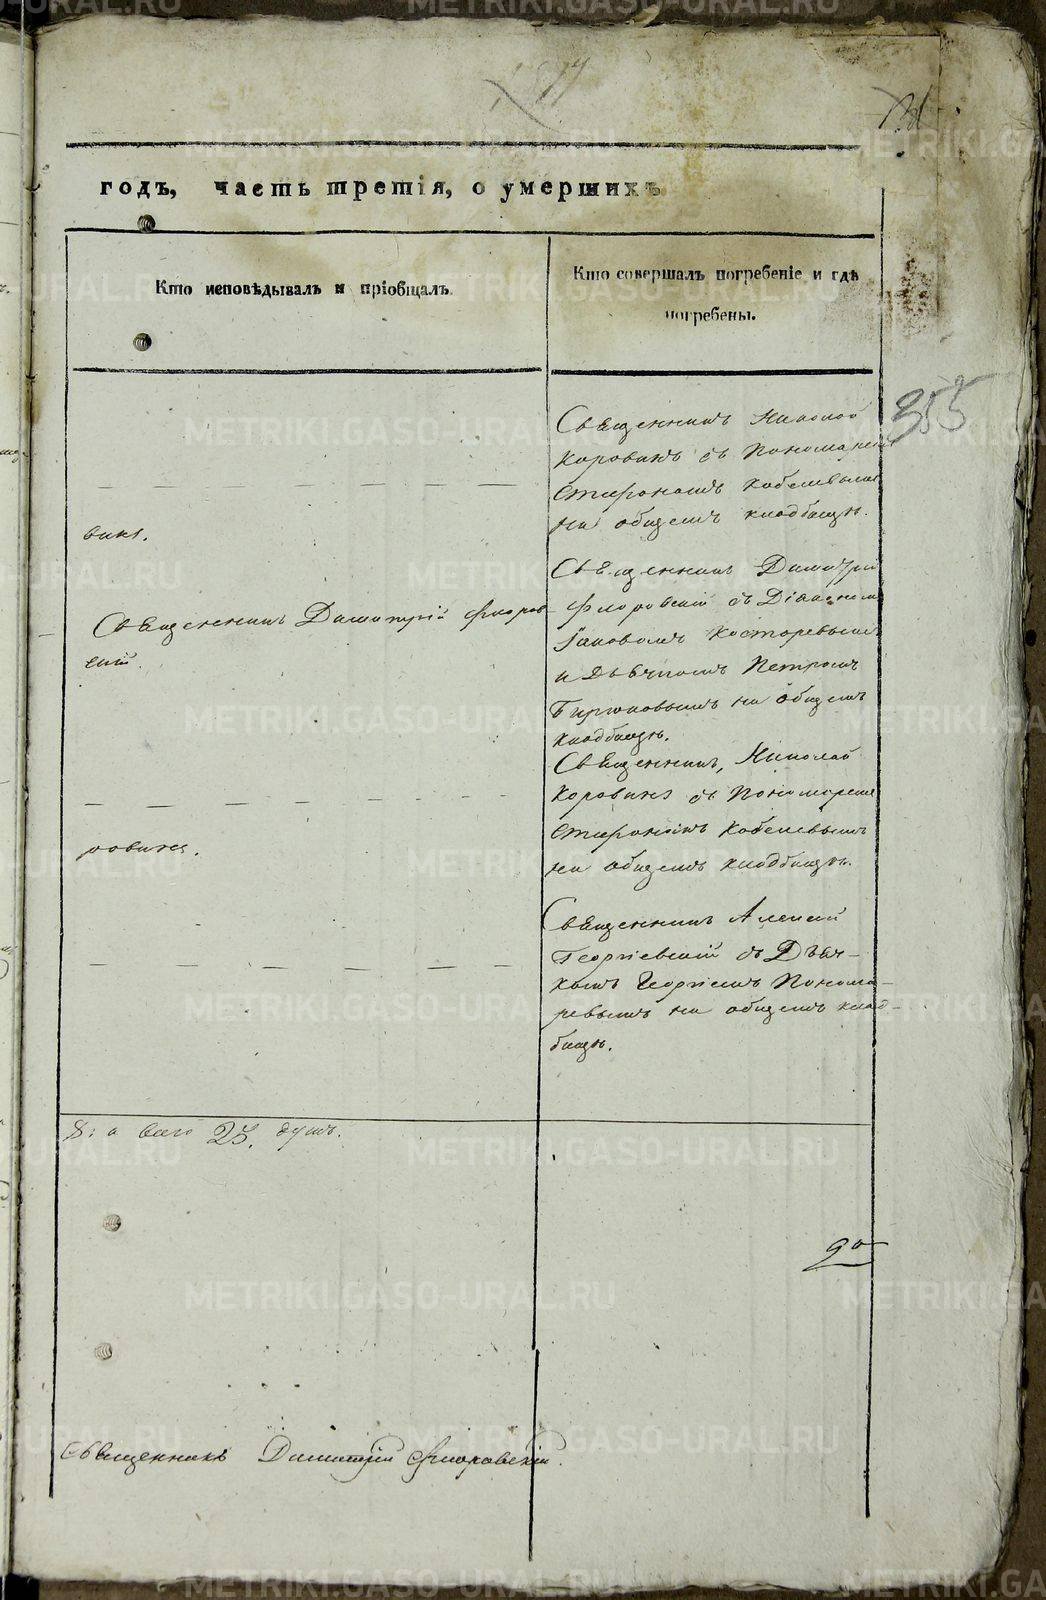 годъ, часть третія, о умершихъ
Кто исповѣдывалъ и пріобщалъ.
Кто совершалъ погребеніе и гдѣ
погребены.
355
Священникъ Николай
Коровинъ съ Пономаремъ
Мирономъ Кобелевымъ
на общемъ кладбищѣ.
викъ.
Священникъ Димитрій Флоров-
скій.
Священникъ Димитрій
Флоровскій съ Діакономъ
Іаковомъ Косторевымъ
и Дьячкомъ Петромъ
Бирюковымъ на общемъ
кладбищѣ.
Священникъ Николай
Коровинъ съ Пономаремъ
Мирономъ Кобелевымъ
на общемъ кладбищѣ.
ровикъ.
Священникъ Алексій
Георгіевскій съ Дьяч-
комъ Георгіемъ Понома-
ревымъ на общемъ клад-
бищѣ.
8: а всего 25. душъ.
Священникъ Димитрій Флоровскій.
METRIKI.GASO-URAL.RU